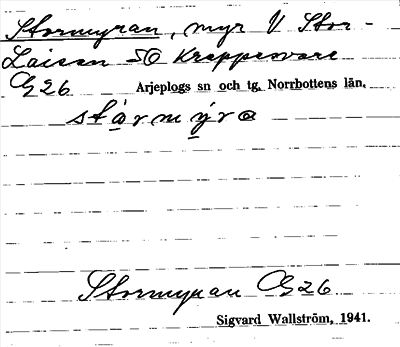 Stormyran, myr V Stor-
Laisan SO Krappesvare
Cg 26 Arjeplogs sn och tg, Norrbottens län.
stårmýra
Stormyran Cg 26
Sigvard Wallström, 1941.